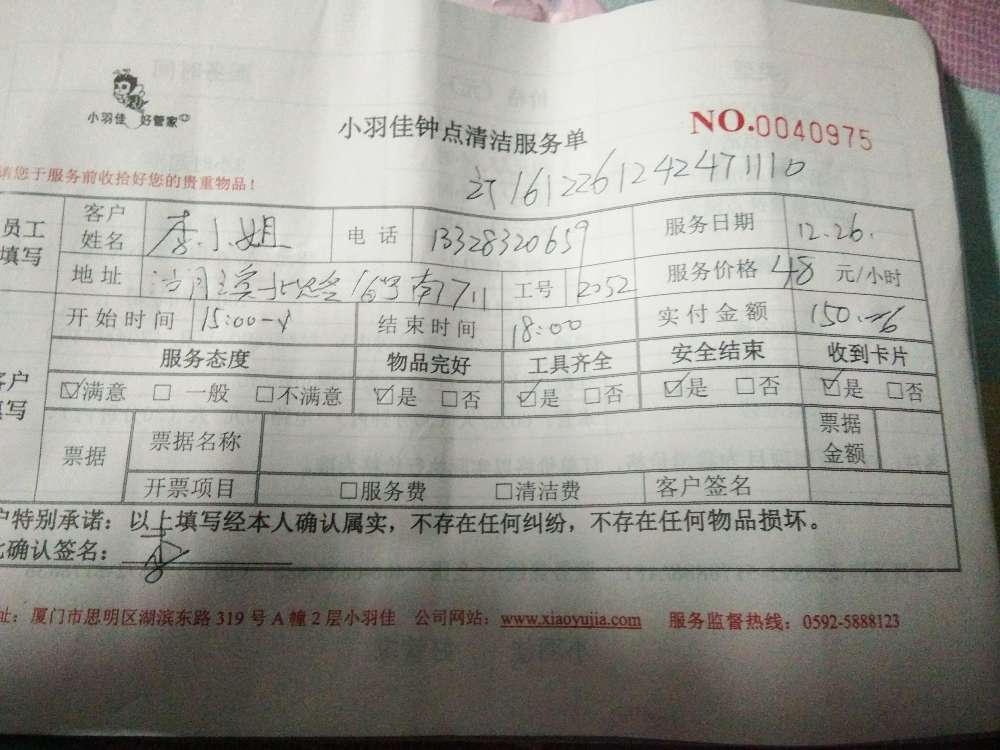 小羽佳 好管家
小羽佳钟点清洁服务单
NO.0040975
请您于服务前收拾好您的贵重物品！
1612261242471110
员工填写 客户姓名 李小姐 电话 13328320659 服务日期 12.26.
地址 路16号南711 工号 2052 服务价格 48 元/小时
开始时间 15:00 结束时间 18:00 实付金额 150
客户填写 服务态度 物品完好 工具齐全 安全结束 收到卡片
☑满意 □一般 □不满意 ☑是 □否 ☑是 □否 ☑是 □否 ☑是 □否
票据 票据名称 票据金额
开票项目 □服务费 □清洁费 客户签名
户特别承诺：以上填写经本人确认属实，不存在任何纠纷，不存在任何物品损坏。
此确认签名：
址：厦门市思明区湖滨东路 319 号 A 幢 2 层小羽佳 公司网站：www.xiaoyujia.com 服务监督热线：0592-5888123